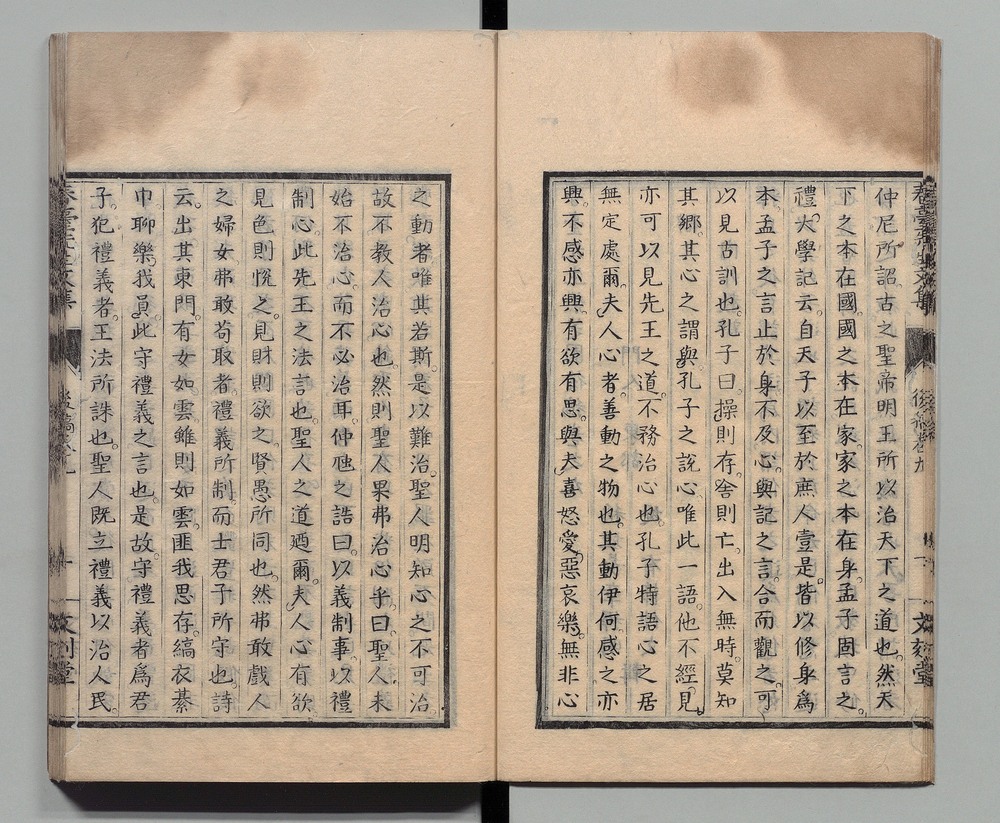 仲尼所詔古之聖帝明王所以治天下之道也。然天
下之本在國。國之本在家。家之本在身。孟子固言之
禮。大學記云。自天子以至於庶人壹是。皆以修身爲
本孟子之言止於身不及心。與記之言。合而觀之。可
以見古訓也。孔子曰。操則存。舍則亡。出入無時。莫知
其鄉。其心之謂與。孔子之說心唯此一語。他不經見。
亦可以見先王之道。不務治心也。孔子特語心之居
無定處爾。夫人心者。善動之物也。其動伊何。感之亦
興。不感亦興。有欲有思。與夫喜怒愛。惡哀樂。無非心
之動者。唯其若斯。是以難治。聖人明知心之不可治
故不教人治心也。然則聖人果弗治心乎。曰。聖人未
始不治心。而不必治耳。仲虺之誥曰。以義制事。以禮
制心。此先王之法言也。聖人之道迺爾。夫人心有欲
見色則悅之。見財則欲之。賢愚所同也。然弗敢戲人
之婦女弗敢苟取者。禮義所制。而士君子所守也。詩
云。出其東門。有女如雲。雖則如雲。匪我思存。縞衣綦
巾聊樂。我員。此守禮義之言也。是故。守禮義者爲君
子。犯禮義者。王法所誅也。聖人既立禮義以治人民。
春臺先生文集
後稿卷九
一
文刻堂